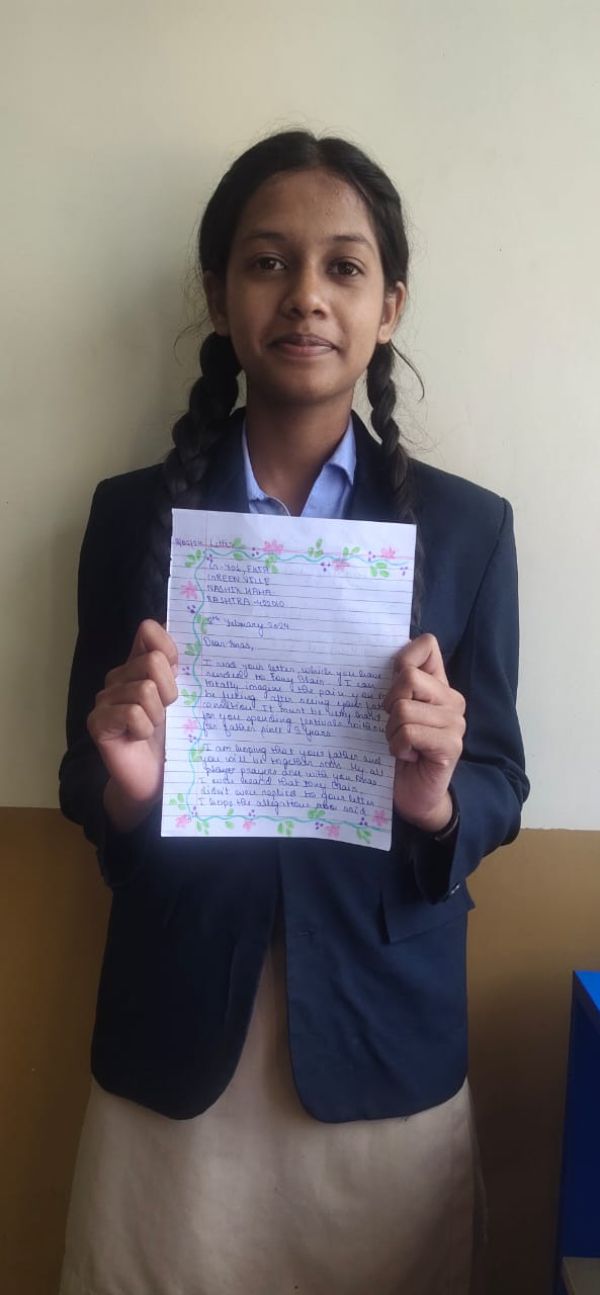 Letter
GREEN VILLE
NASHIK MAHA-
RASHTRA-422010
February 2024
Dear Anas,
I read your letter, which you have
sended to Tony Blair. I can
totally imagine the pain you
be felling after seeing your
condition. It must be very hard
for you spending festivals
father since 3 years.
I am hoping that your father and
you will be together soon. My all
prayers are with you Anas
I even heard that Tony Blair,
didn't even replied to your letter
I hope the allegations said